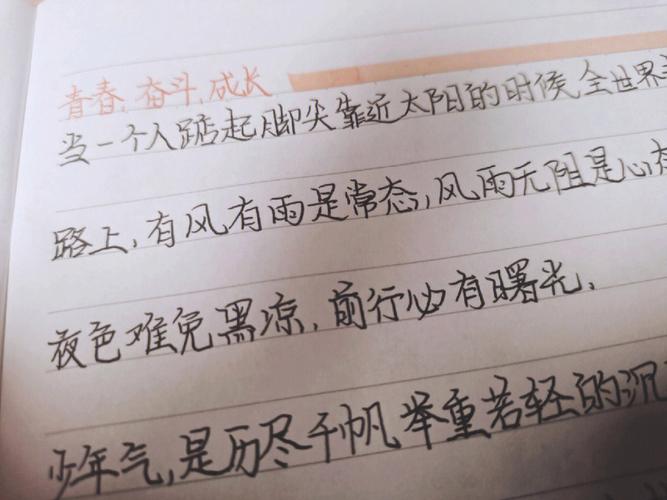 青春、奋斗、成长
当一个人踮起脚尖靠近太阳的时候,全世界
路上,有风有雨是常态,风雨无阻是心
夜色难免黑凉,前行必有曙光.
少年气,是历尽千帆举重若轻的沉